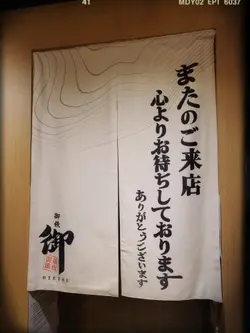 41
MDY02 EPT 6037
またのご来店
心よりお待ちしております
ありがとうございます
御